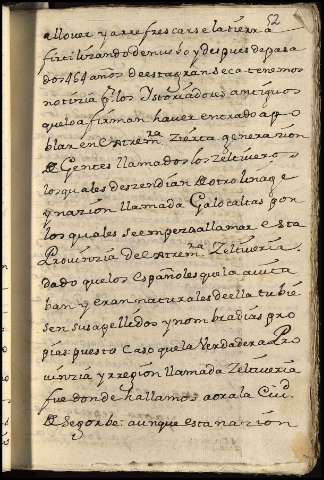 52
allover y a rrefrescarse la tierra
firtilizando de nuebo y despues de pasa
dos 464 años de esta gran seca tenemos
notiçia pr. los Ystoriadores antiguos
que lo afirman haver entrado a po
blar en Extrem.ra zierta generazion
De Gentes llamados los zeltiveros
los quales deszendian De otro linage
y nazion llamada Galo caltas por
los quales se empezo a llamar esta
Provinzia de Extrem.ra Zeltiveria.
dado que los Españoles que la avita
ban y eran naturales de ella tubie
sen sus apellidos y nombradias pro
pias puesto caso que la Verdadera Pro
vinzia y rregion llamada Zeltiveria
fue donde hallamos aora la Ciud.
De Segorbe: aunque esta nazion